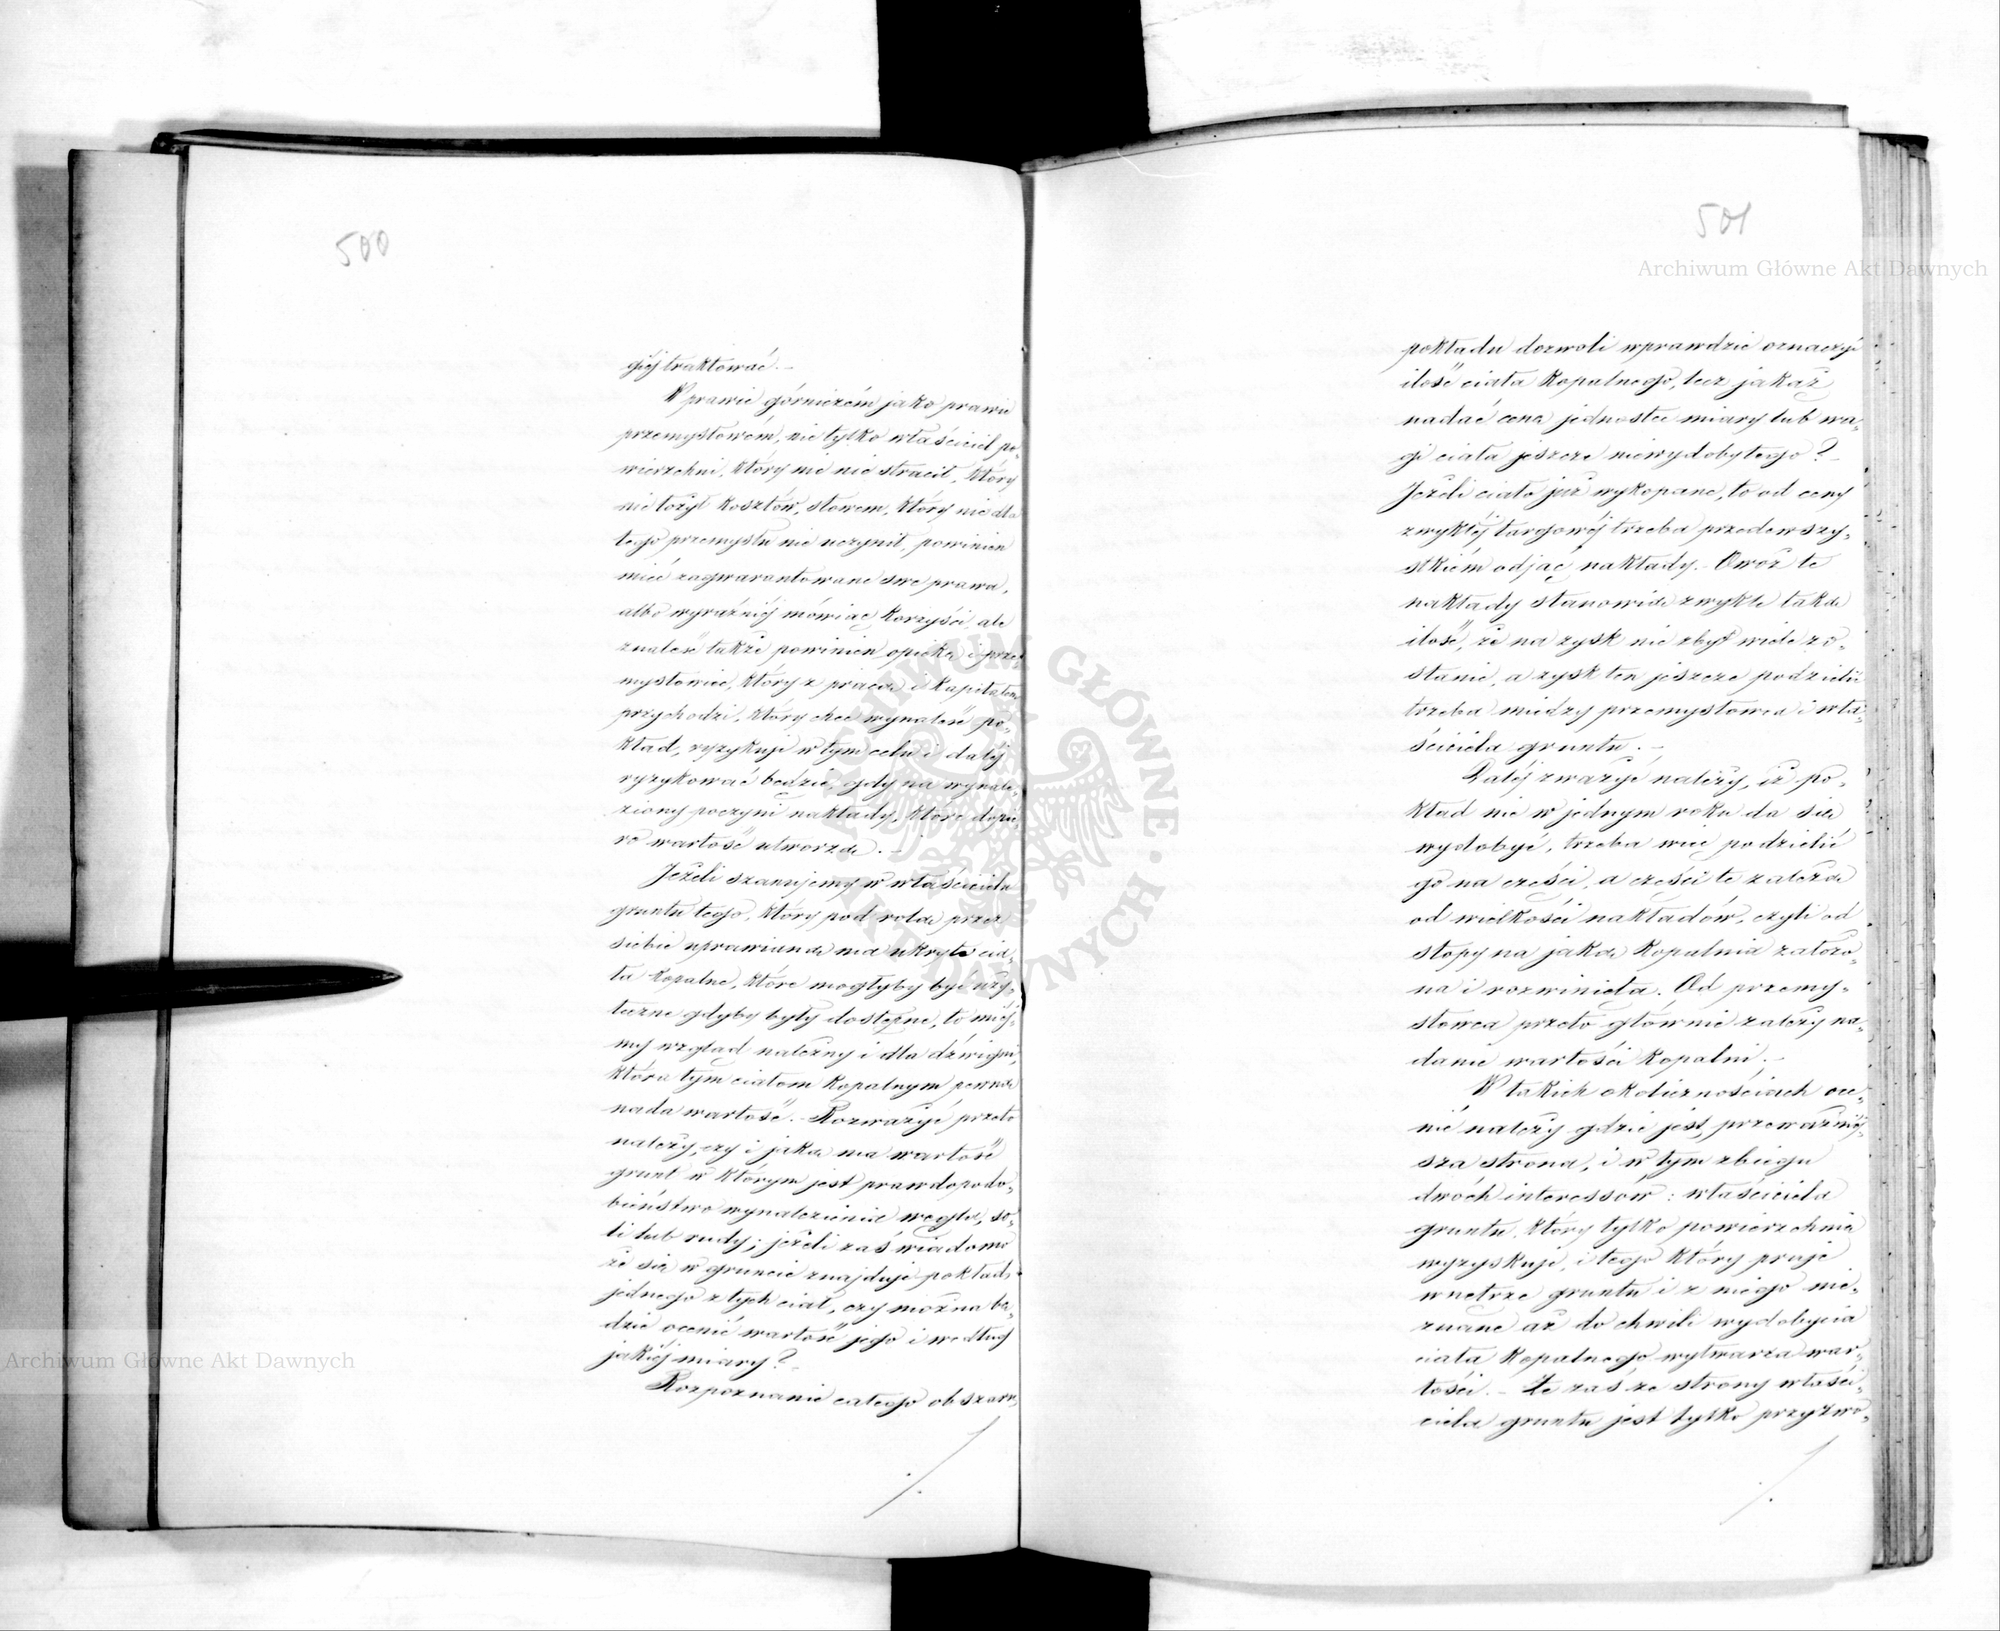 500
giéj traktować.—
W prawie górniczém jako prawie
przemysłowém, nie tylko właściciel po-
wierzchni, który nic nie stracił, który
nie łożył kosztów, słowem, który nic dla
tego przemysłu nie uczynił, powinien
mieć zagwarantowane swe prawa,
albo wyraźniéj mówiąc korzyści, ale
znaleść także powinien opiekę i prze-
mysłowiec, który z pracą i kapitałem
przychodzi, który chce wynaleść po-
kład, ryzykuje w tym celu i daléj
ryzykować będzie, gdy na wynale-
ziony poczyni nakłady, które dopie-
ro wartość utworzą.—
Jeżeli szanujemy w właścicielu
gruntu tego, który pod rolą przez
siebie uprawianą ma ukryte cia-
ła kopalne, które mogłyby być uży-
teczne gdyby były dostępne, to miéj-
my wzgląd należny i dla dźwigni,
która tym ciałom kopalnym pewną
nada wartość.— Rozważyć przeto
należy, czy i jaką ma wartość
grunt w którym jest prawdopodo-
bieństwo wynalezienia węgla, so-
li lub rudy; jeżeli zaś wiadomo
że się w gruncie znajduje pokład
jednego z tych ciał, czy można bę-
dzie ocenić wartość jego i według
jakiéj miary?—
Rozpoznanie całego obszaru
501
pokładu dozwoli wprawdzie oznaczyć
ilość ciała kopalnego, lecz jakąż
nadać cenę jednostce miary lub wa-
gi ciała jeszcze niewydobytego?—
Jeżeli ciało już wykopane, to od ceny
zwykłéj targowéj trzeba przedewszy-
stkiém odjąć nakłady.— Owóż te
nakłady stanowią zwykle taką
ilość, że na zysk nie zbyt wiele zo-
stanie, a zysk ten jeszcze podzielić
trzeba między przemysłowca i wła-
ściciela gruntu.—
Daléj zważyć należy, iż po-
kład nie w jednym roku da się
wydobyć, trzeba więc podzielić
go na części, a części te zależą
od wielkości nakładów, czyli od
stopy na jaką kopalnia założo-
na i rozwinięta. Od przemy-
słowca przeto głównie zależy na-
danie wartości kopalni.—
W takich okolicznościach oce-
nić należy gdzie jest przeważniéj-
sza strona, i w tym zbiegu
dwóch interessów: właściciela
gruntu, który tylko powierzchnię
wyzyskuje, i tego który pruje
wnętrze gruntu i z niego nie-
znane aż do chwili wydobycia
ciała kopalnego wytwarza war-
tości.— Że zaś ze strony właści-
ciela gruntu jest tylko przyzwo-
Archiwum Główne Akt Dawnych
Archiwum Główne Akt Dawnych
ARCHIWUM GŁÓWNE AKT DAWNYCH